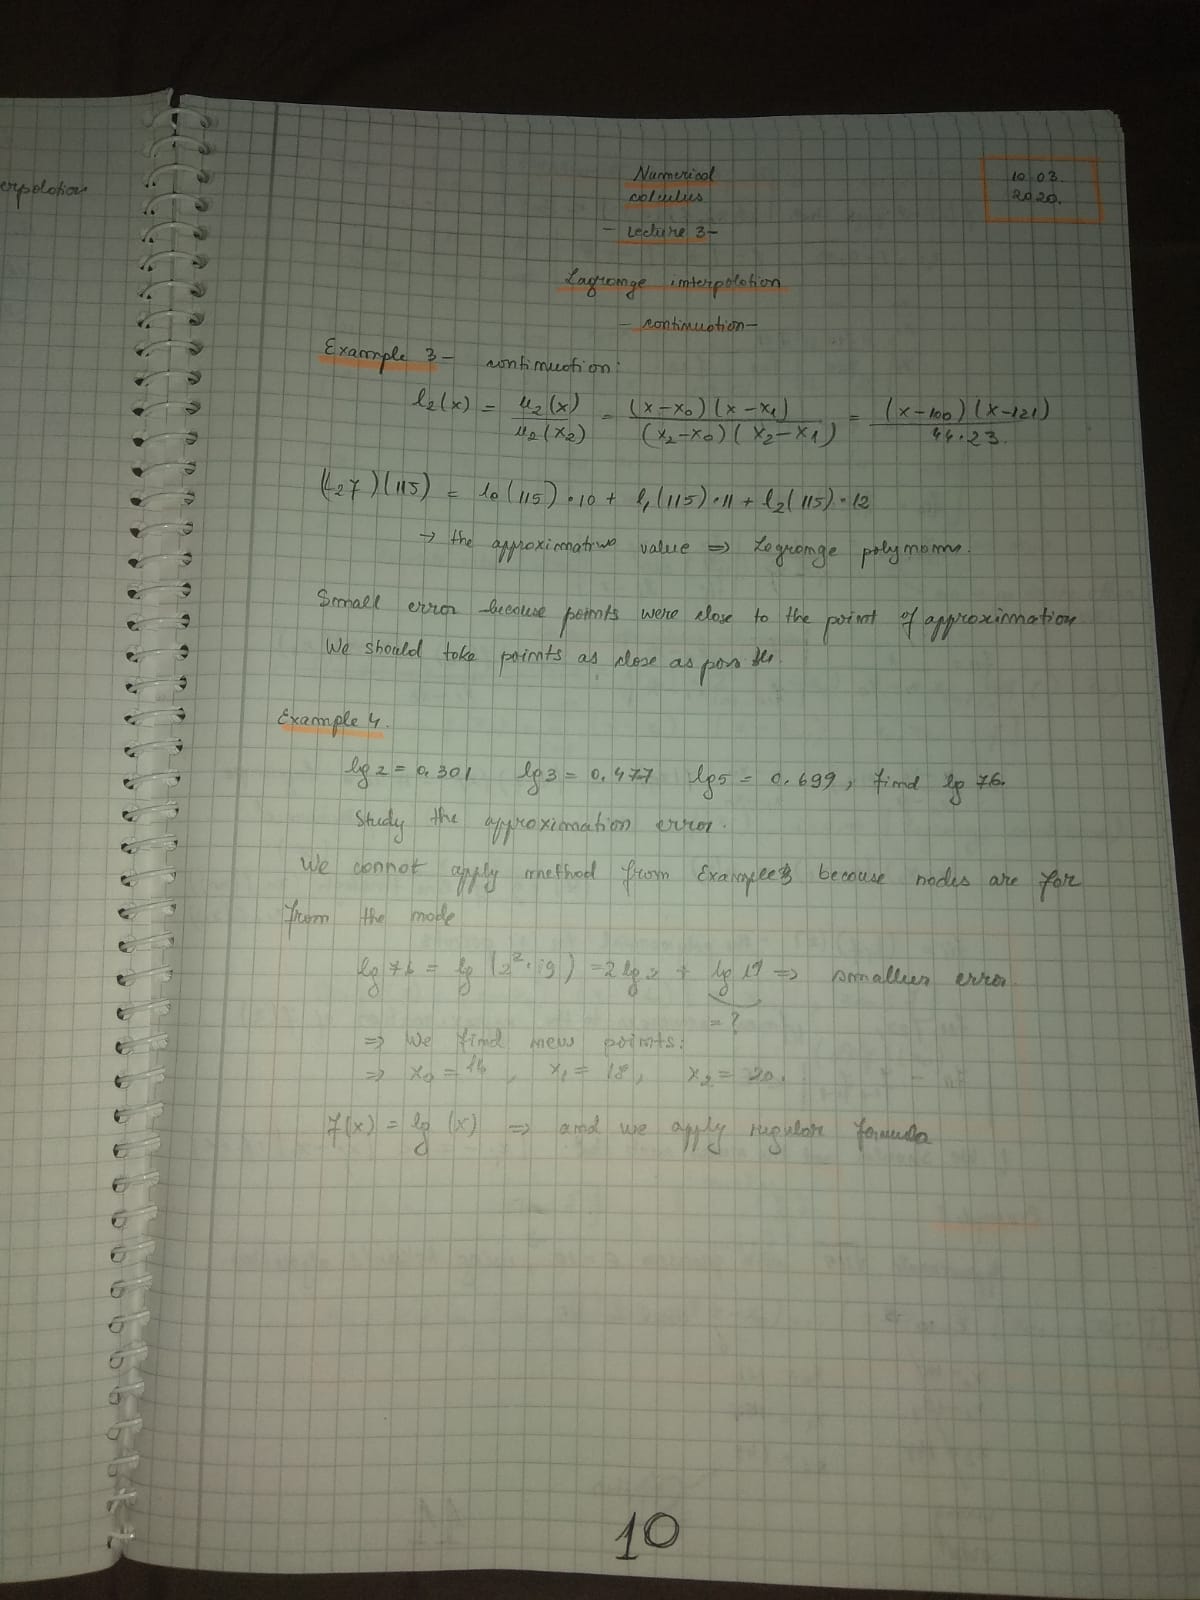 erpolation
Numerical
calculus
10.03.
2020.
- Lecture 3-
Lagrange interpolation
- continuation-
Example 3 - continuation:
l₂(x) = u₂(x) / u₂(x₂) = (x-x₀)(x-x₁) / (x₂-x₀)(x₂-x₁) = (x-100)(x-121) / 44·23.
(L₂f)(115) = l₀(115)·10 + l₁(115)·11 + l₂(115)·12
→ the approximative value ⇒ Lagrange polynom.
Small error because points were close to the point of approximation
We should take points as close as possible.
Example 4.
lg 2 = 0.301 lg 3 = 0.477 lg 5 = 0.699, find lg 76.
Study the approximation error.
We cannot apply method from Example 3 because nodes are far
from the node
lg 76 = lg (2²·19) = 2 lg 2 + lg 19 ⇒ smaller error
= ?
⇒ We find new points:
⇒ x₀ = , x₁ = 18, x₂ = 20.
f(x) = lg (x) ⇒ and we apply regular formula
10